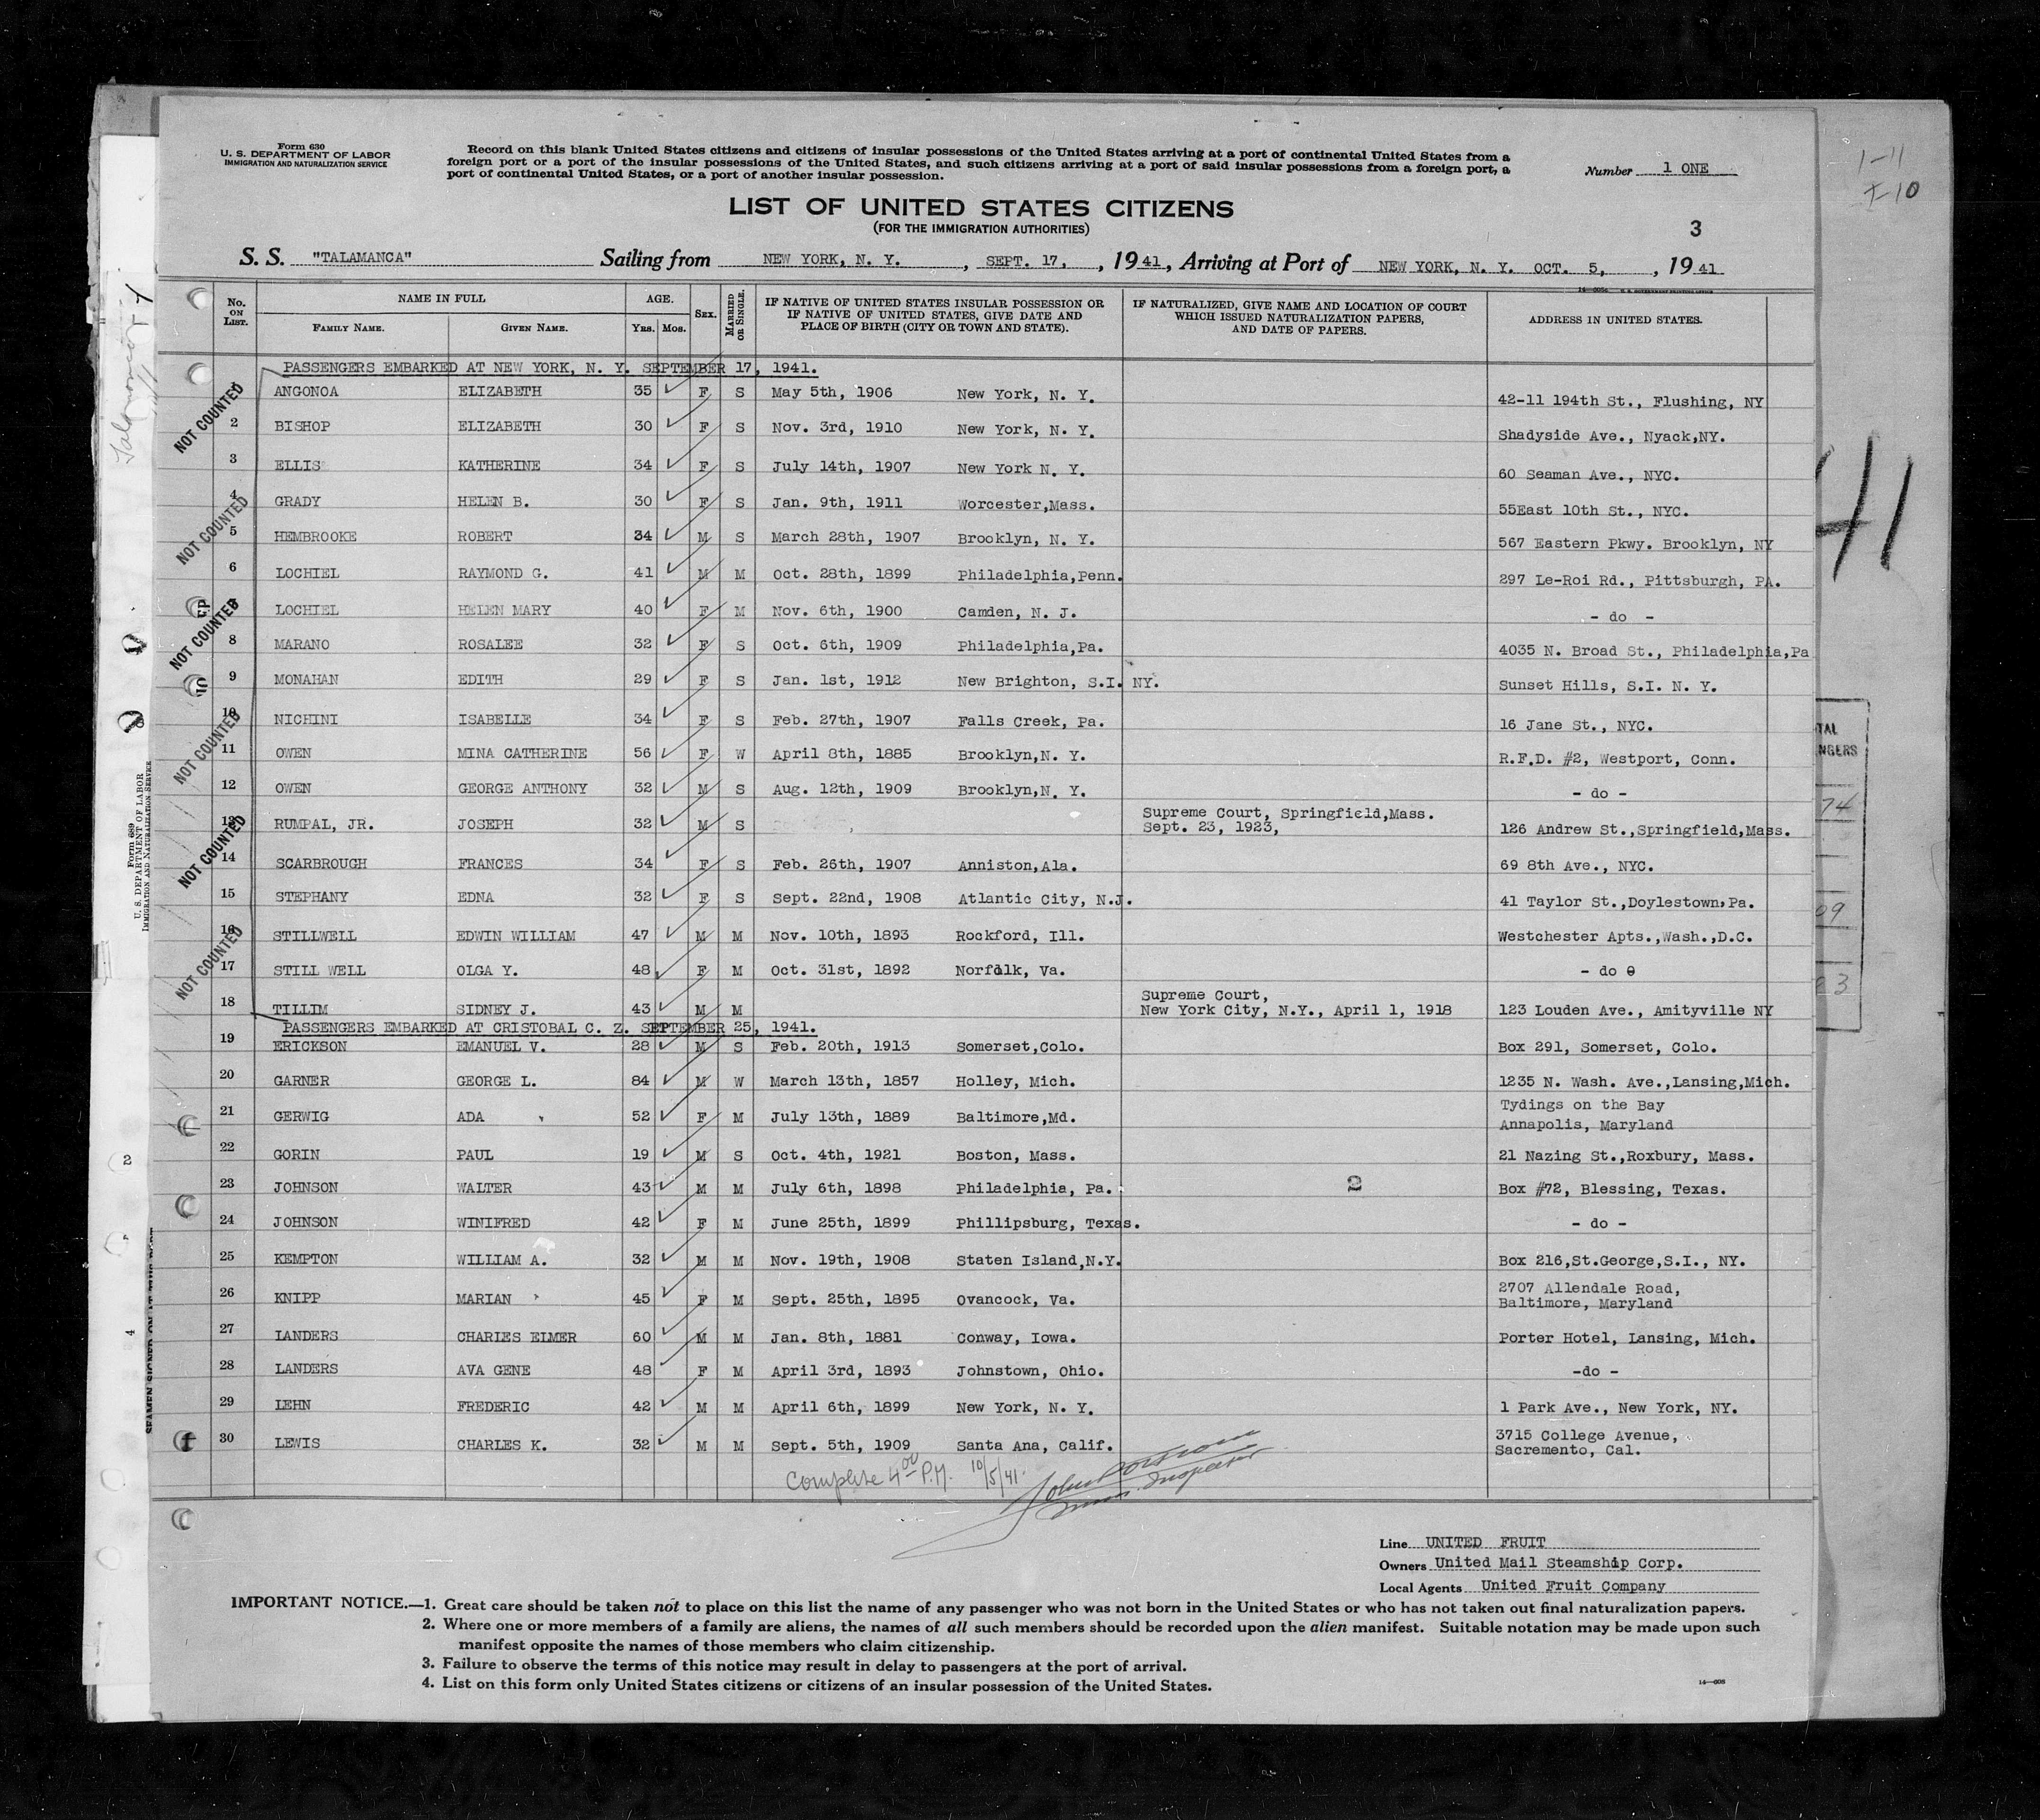 Form 630
U. S. DEPARTMENT OF LABOR
IMMIGRATION AND NATURALIZATION SERVICE
Record on this blank United States citizens and citizens of insular possessions of the United States arriving at a port of continental United States from a
foreign port or a port of the insular possessions of the United States, and such citizens arriving at a port of said insular possessions from a foreign port, a
port of continental United States, or a port of another insular possession.
Number 1 ONE
1-11
LIST OF UNITED STATES CITIZENS
(FOR THE IMMIGRATION AUTHORITIES)
3
S. S. "TALAMANCA" Sailing from NEW YORK, N. Y. , SEPT. 17, , 19 41, Arriving at Port of NEW YORK, N. Y. OCT. 5, , 19 41
No. ON LIST. NAME IN FULL AGE. SEX. MARRIED OR SINGLE. IF NATIVE OF UNITED STATES INSULAR POSSESSION OR IF NATIVE OF UNITED STATES, GIVE DATE AND PLACE OF BIRTH (CITY OR TOWN AND STATE). IF NATURALIZED, GIVE NAME AND LOCATION OF COURT WHICH ISSUED NATURALIZATION PAPERS, AND DATE OF PAPERS. ADDRESS IN UNITED STATES.
FAMILY NAME. GIVEN NAME. YRS. MOS.
PASSENGERS EMBARKED AT NEW YORK, N. Y. SEPTEMBER 17, 1941.
ANGONOA ELIZABETH 35 F S May 5th, 1906 New York, N. Y. 42-11 194th St., Flushing, NY
2 BISHOP ELIZABETH 30 F S Nov. 3rd, 1910 New York, N. Y. Shadyside Ave., Nyack,NY.
3 ELLIS KATHERINE 34 F S July 14th, 1907 New York N. Y. 60 Seaman Ave., NYC.
4 GRADY HELEN B. 30 F S Jan. 9th, 1911 Worcester,Mass. 55East 10th St., NYC.
5 HEMBROOKE ROBERT 34 M S March 28th, 1907 Brooklyn, N. Y. 567 Eastern Pkwy. Brooklyn, NY
6 LOCHIEL RAYMOND G. 41 M M Oct. 28th, 1899 Philadelphia,Penn. 297 Le-Roi Rd., Pittsburgh, PA.
LOCHIEL HELEN MARY 40 F M Nov. 6th, 1900 Camden, N. J. - do -
8 MARANO ROSALEE 32 F S Oct. 6th, 1909 Philadelphia,Pa. 4035 N. Broad St., Philadelphia,Pa
9 MONAHAN EDITH 29 F S Jan. 1st, 1912 New Brighton, S.I. NY. Sunset Hills, S.I. N. Y.
10 NICHINI ISABELLE 34 F S Feb. 27th, 1907 Falls Creek, Pa. 16 Jane St., NYC.
11 OWEN MINA CATHERINE 56 F W April 8th, 1885 Brooklyn,N. Y. R.F.D. #2, Westport, Conn.
12 OWEN GEORGE ANTHONY 32 M S Aug. 12th, 1909 Brooklyn,N. Y. - do -
13 RUMPAL, JR. JOSEPH 32 M S Supreme Court, Springfield,Mass. Sept. 23, 1923, 126 Andrew St.,Springfield,Mass.
14 SCARBROUGH FRANCES 34 F S Feb. 26th, 1907 Anniston,Ala. 69 8th Ave., NYC.
15 STEPHANY EDNA 32 F S Sept. 22nd, 1908 Atlantic City, N.J. 41 Taylor St.,Doylestown,Pa.
16 STILLWELL EDWIN WILLIAM 47 M M Nov. 10th, 1893 Rockford, Ill. Westchester Apts.,Wash.,D.C.
17 STILL WELL OLGA Y. 48 F M Oct. 31st, 1892 Norfolk, Va. - do
18 TILLIM SIDNEY J. 43 M M Supreme Court, New York City, N.Y., April 1, 1918 123 Louden Ave., Amityville NY
PASSENGERS EMBARKED AT CRISTOBAL C. Z. SEPTEMBER 25, 1941.
19 ERICKSON EMANUEL V. 28 M S Feb. 20th, 1913 Somerset,Colo. Box 291, Somerset, Colo.
20 GARNER GEORGE L. 84 M W March 13th, 1857 Holley, Mich. 1235 N. Wash. Ave.,Lansing,Mich.
21 GERWIG ADA 52 F M July 13th, 1889 Baltimore,Md. Tydings on the Bay Annapolis, Maryland
22 GORIN PAUL 19 M S Oct. 4th, 1921 Boston, Mass. 21 Nazing St.,Roxbury, Mass.
23 JOHNSON WALTER 43 M M July 6th, 1898 Philadelphia, Pa. 2 Box #72, Blessing, Texas.
24 JOHNSON WINIFRED 42 F M June 25th, 1899 Phillipsburg, Texas. - do -
25 KEMPTON WILLIAM A. 32 M M Nov. 19th, 1908 Staten Island,N.Y. Box 216,St.George,S.I., NY.
26 KNIPP MARIAN 45 F M Sept. 25th, 1895 Ovancock, Va. 2707 Allendale Road, Baltimore, Maryland
27 LANDERS CHARLES ELMER 60 M M Jan. 8th, 1881 Conway, Iowa. Porter Hotel, Lansing, Mich.
28 LANDERS AVA GENE 48 F M April 3rd, 1893 Johnstown, Ohio. -do -
29 LEHN FREDERIC 42 M M April 6th, 1899 New York, N. Y. 1 Park Ave., New York, NY.
30 LEWIS CHARLES K. 32 M M Sept. 5th, 1909 Santa Ana, Calif. 3715 College Avenue, Sacremento, Cal.
Complete 4 00 P.M. 10/5/41.
Inspector
NOT COUNTED
NOT COUNTED
NOT COUNTED
NOT COUNTED
NOT COUNTED
NOT COUNTED
Form 689
U. S. DEPARTMENT OF LABOR
IMMIGRATION AND NATURALIZATION SERVICE
41
74
09
Line UNITED FRUIT
Owners United Mail Steamship Corp.
Local Agents United Fruit Company
IMPORTANT NOTICE.—1. Great care should be taken not to place on this list the name of any passenger who was not born in the United States or who has not taken out final naturalization papers.
2. Where one or more members of a family are aliens, the names of all such members should be recorded upon the alien manifest. Suitable notation may be made upon such
manifest opposite the names of those members who claim citizenship.
3. Failure to observe the terms of this notice may result in delay to passengers at the port of arrival.
4. List on this form only United States citizens or citizens of an insular possession of the United States.